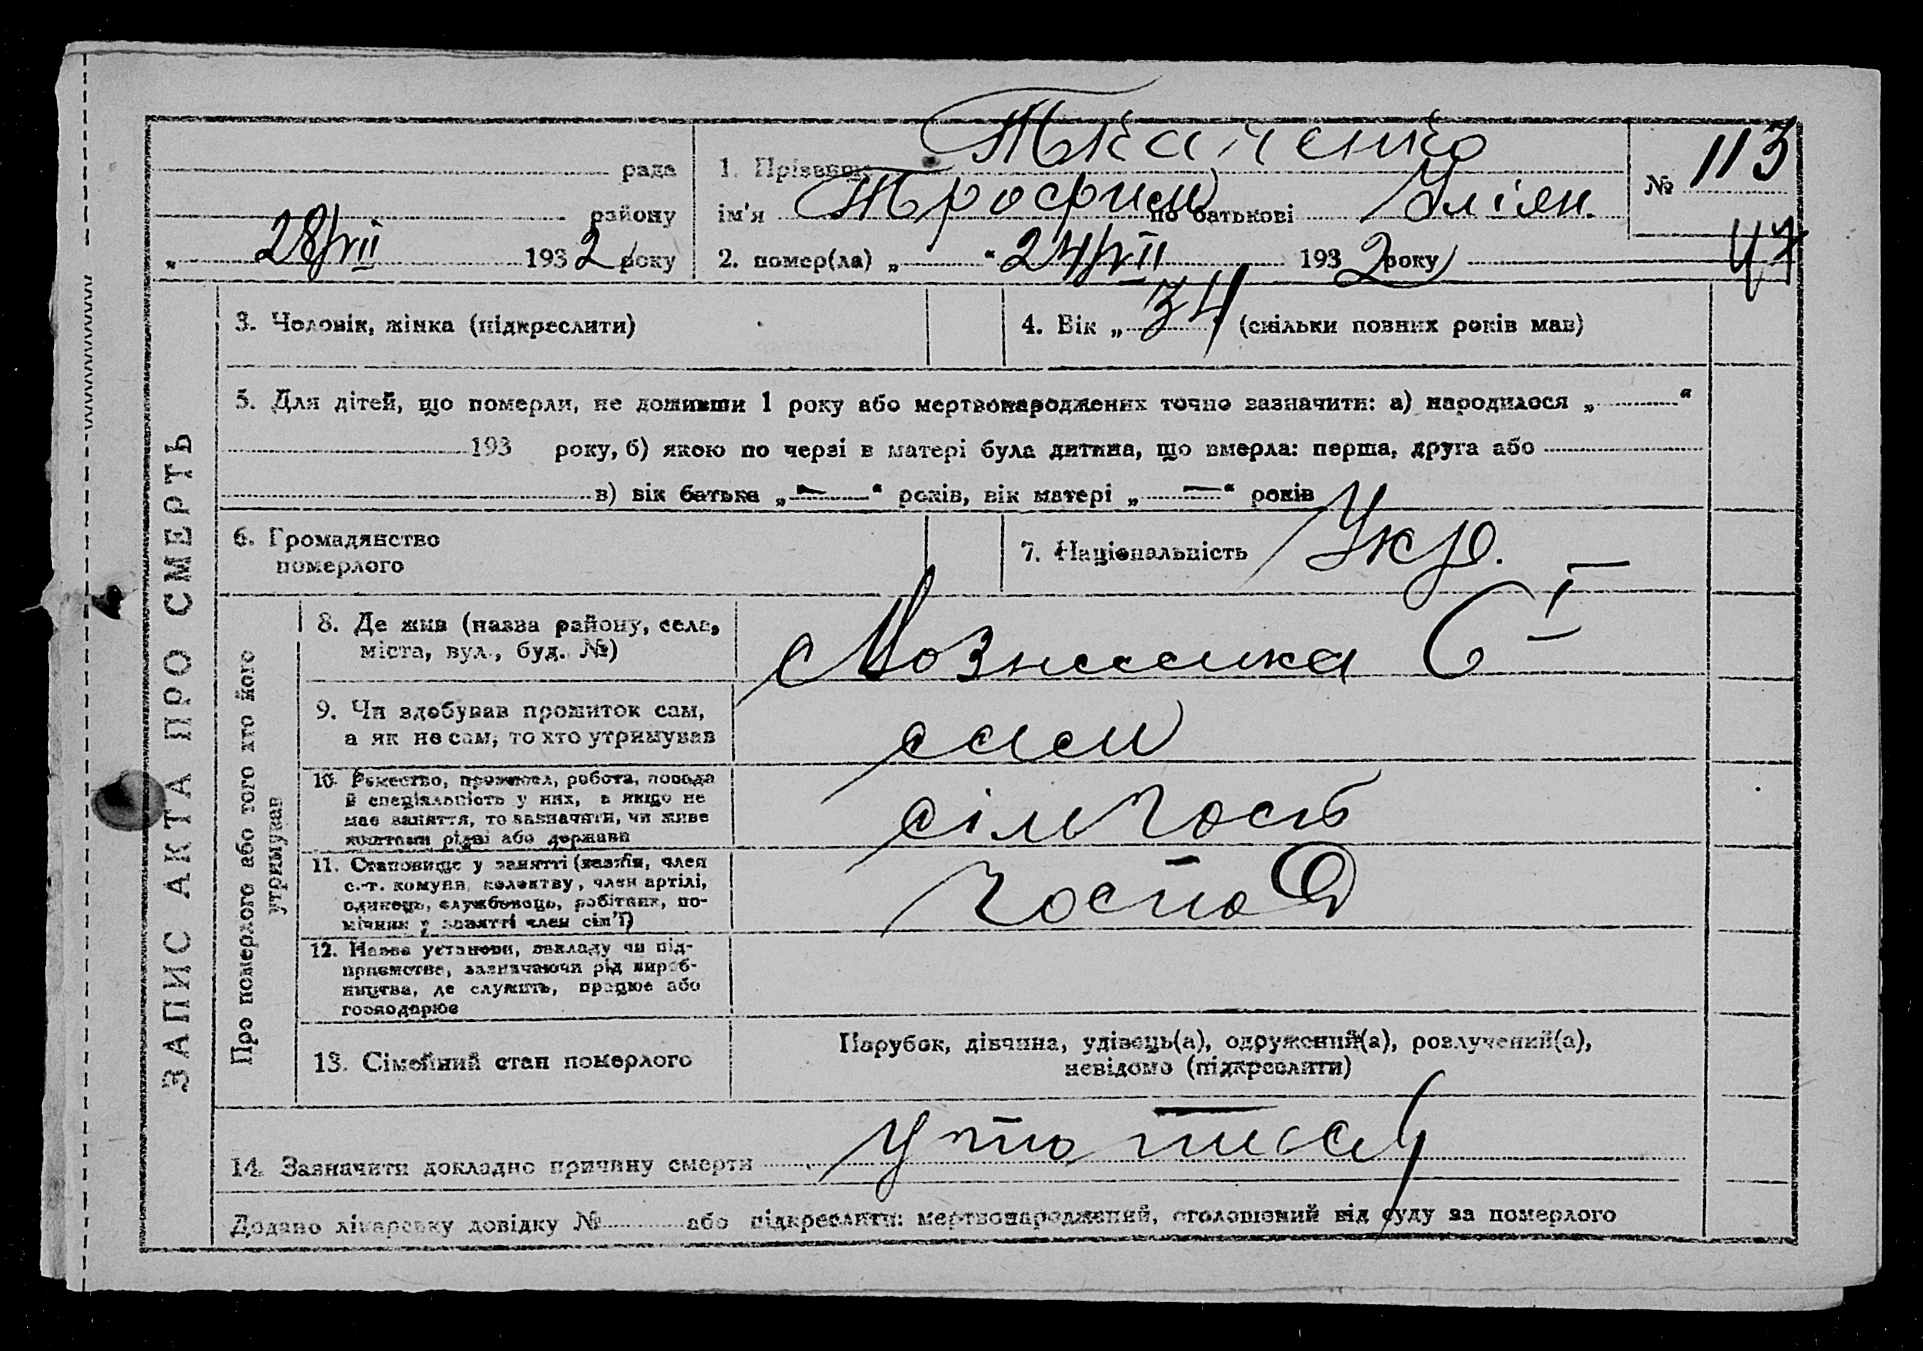 рада
району
28/VII 1932 року
1. Прізвище Ткаченко
ім'я Трофим по батькові Уліян.
2. помер(ла) „ “ 24/VII 1932 року
№ 113
47
ЗАПИС АКТА ПРО СМЕРТЬ
3. Чоловік, жінка (підкреслити)
4. Вік „ 34 “ (скільки повних років мав)
5. Для дітей, що померли, не доживши 1 року або мертвонароджених точно зазначити: а) народилося „ “
193 року, б) якою по черзі в матері була дитина, що вмерла: перша, друга або
в) вік батька „ — “ років, вік матері „ — “ років
6. Громадянство
померлого
7. Національність Укр.
Про померлого або того хто його
утримував
8. Де жив (назва району, села,
міста, вул., буд. №)
9. Чи здобував прожиток сам,
а як не сам, то хто утримував
сам
10. Ремество, промисел, робота, посада
й спеціяльність у них, а якщо не
має заняття, то зазначити, чи живе
коштами рідні або держави
сіл госп
11. Становище у занятті (хазяїн, член
с.-г. комуни, колектву, член артілі,
одинець, службовець, робітник, по-
мічник у занятті член сім'ї)
господ
12. Назва установи, закладу чи під-
приємства, зазначаючи рід вироб-
ництва, де служить, працює або
господарює
13. Сімейний стан померлого
Парубок, дівчина, удівець(а), одружений(а), розлучений(а),
невідомо (підкреслити)
14. Зазначити докладно причину смерти
Додано лікарську довідку № або підкреслити: мертвонароджений, оголошений від суду за померлого